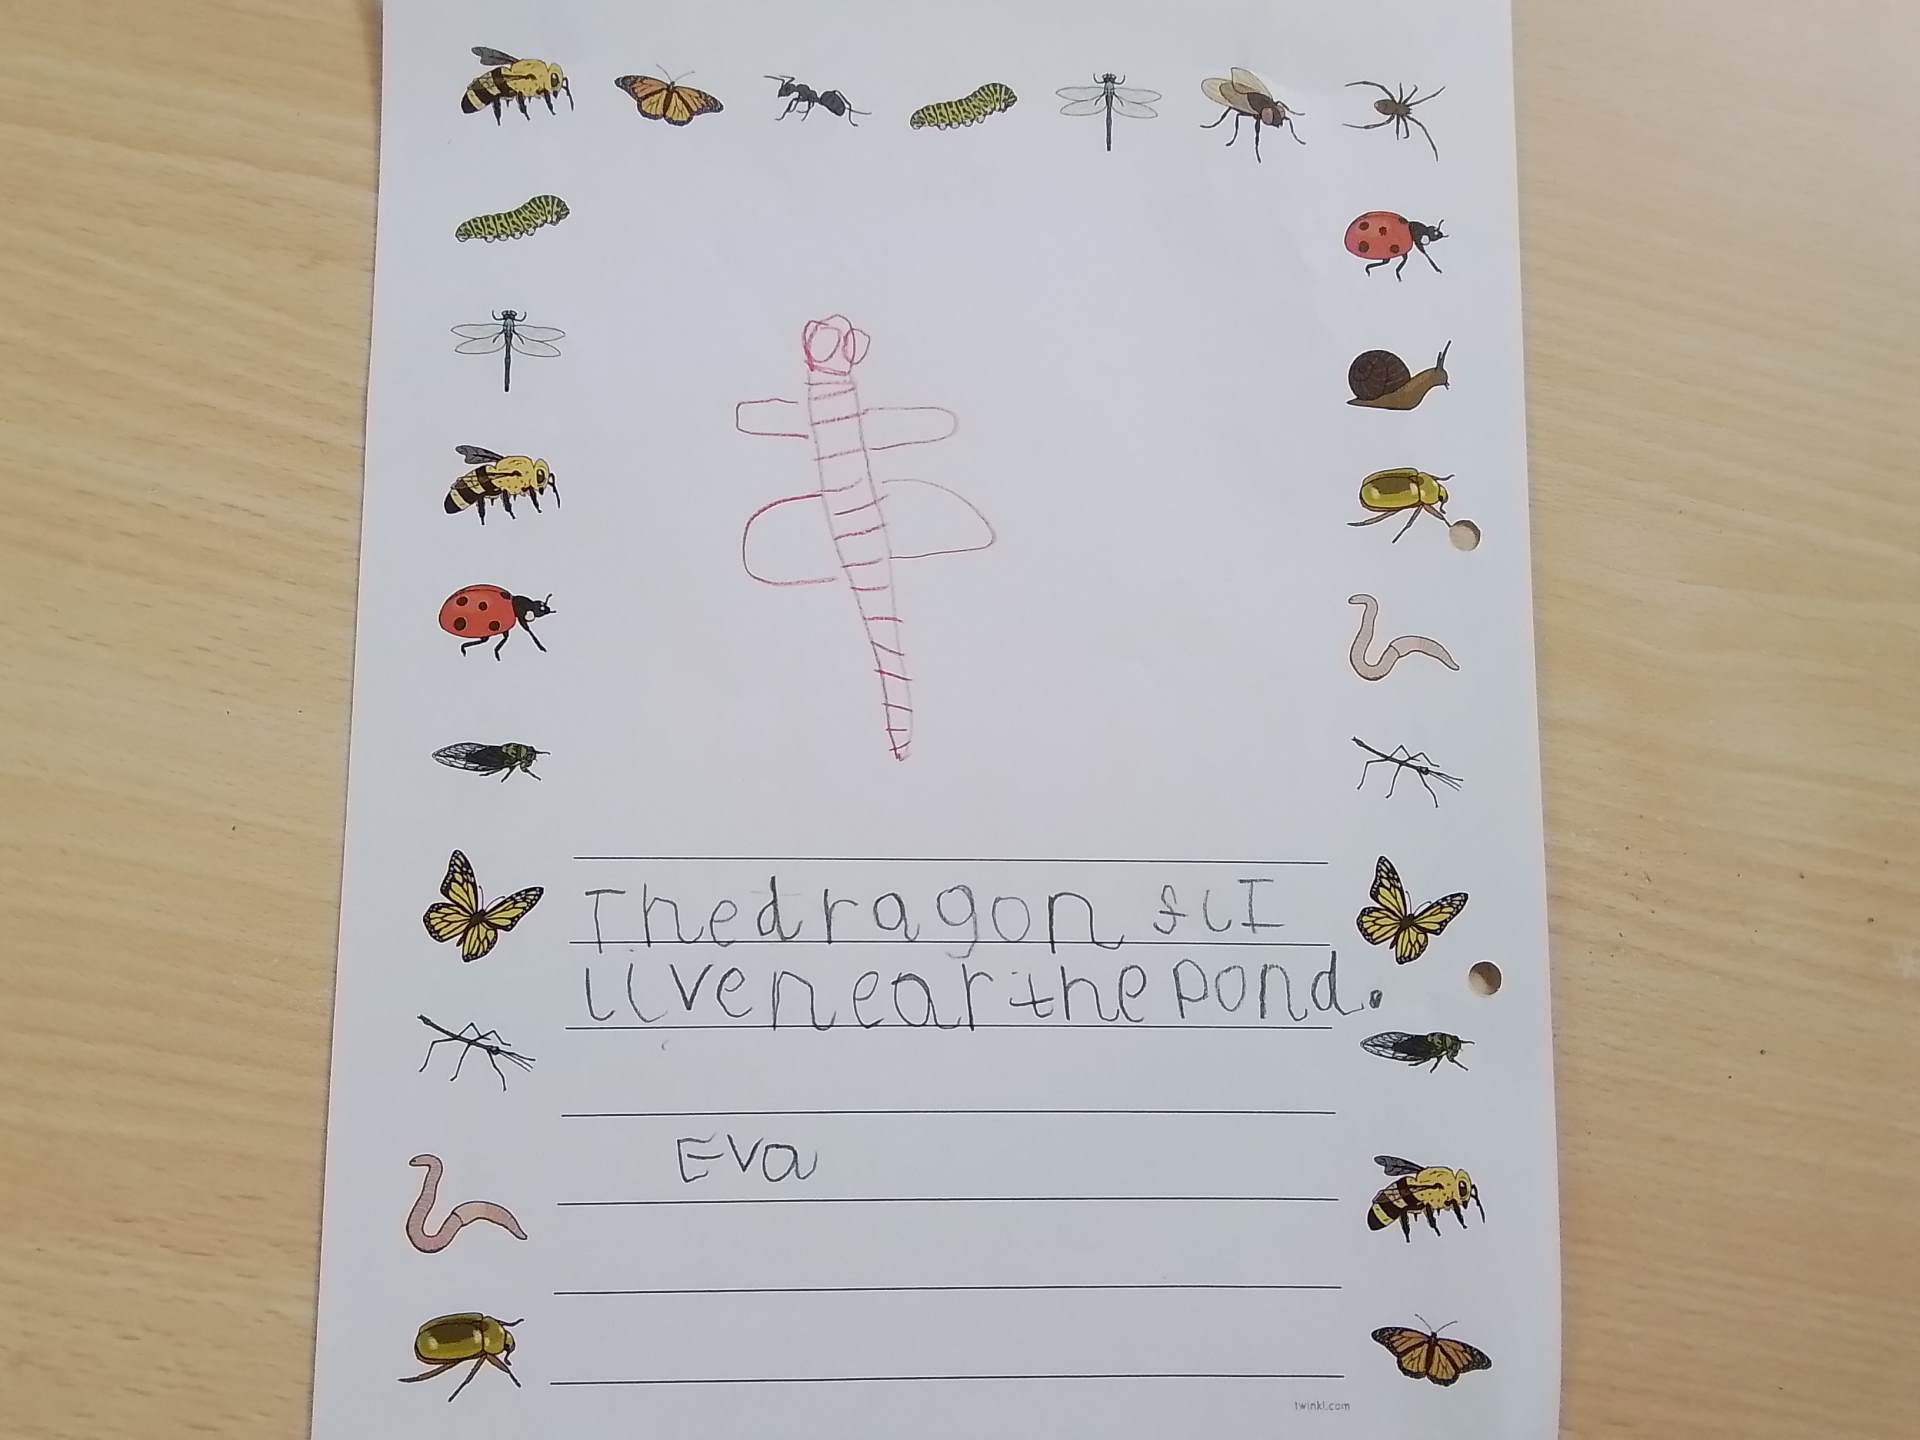 The dragon flI
live near the pond.
Eva
twinkl.com